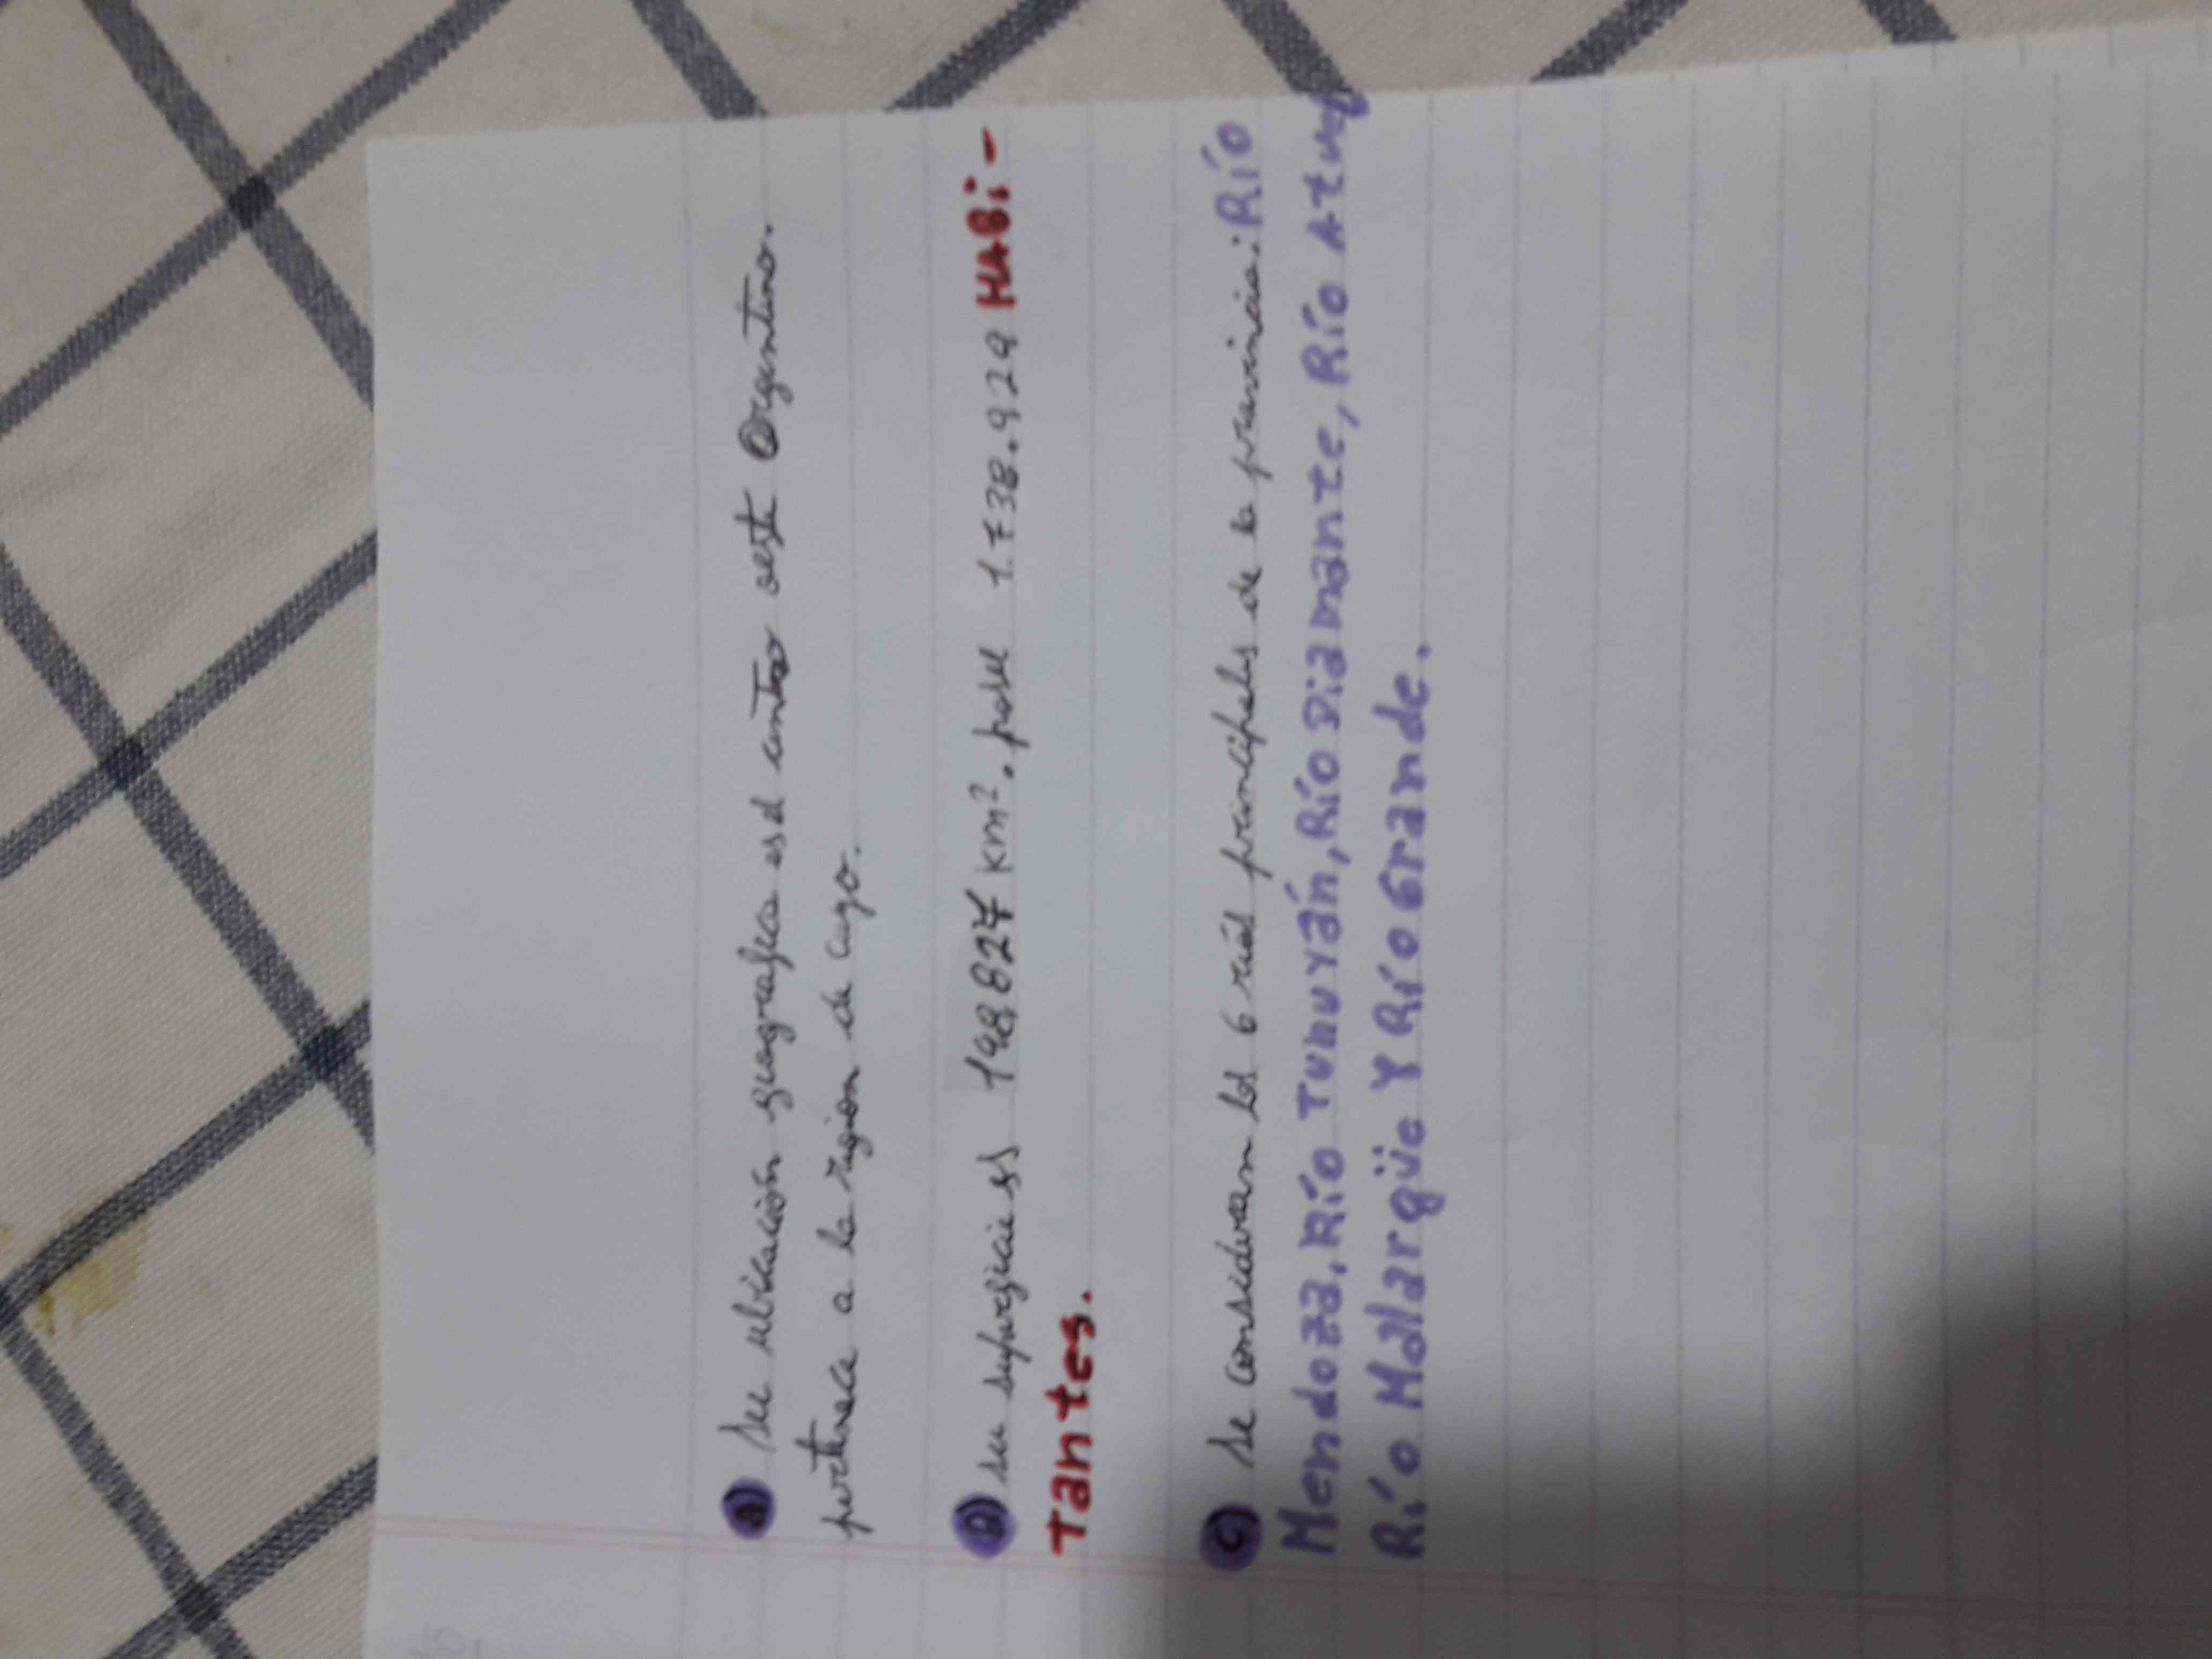 a) su ubicación geografica es el centro oeste Argentino.
pertenece a la region de cuyo.
B) su superficie es 148827 km². posee 1.738.929 HABi-
Tantes.
c) Se consideran los 6 ríos principales de la provincia: Río
Mendoza, Río Tunuyán, Río Diamante, Río Atuel
Río Malargüe Y Río Grande.